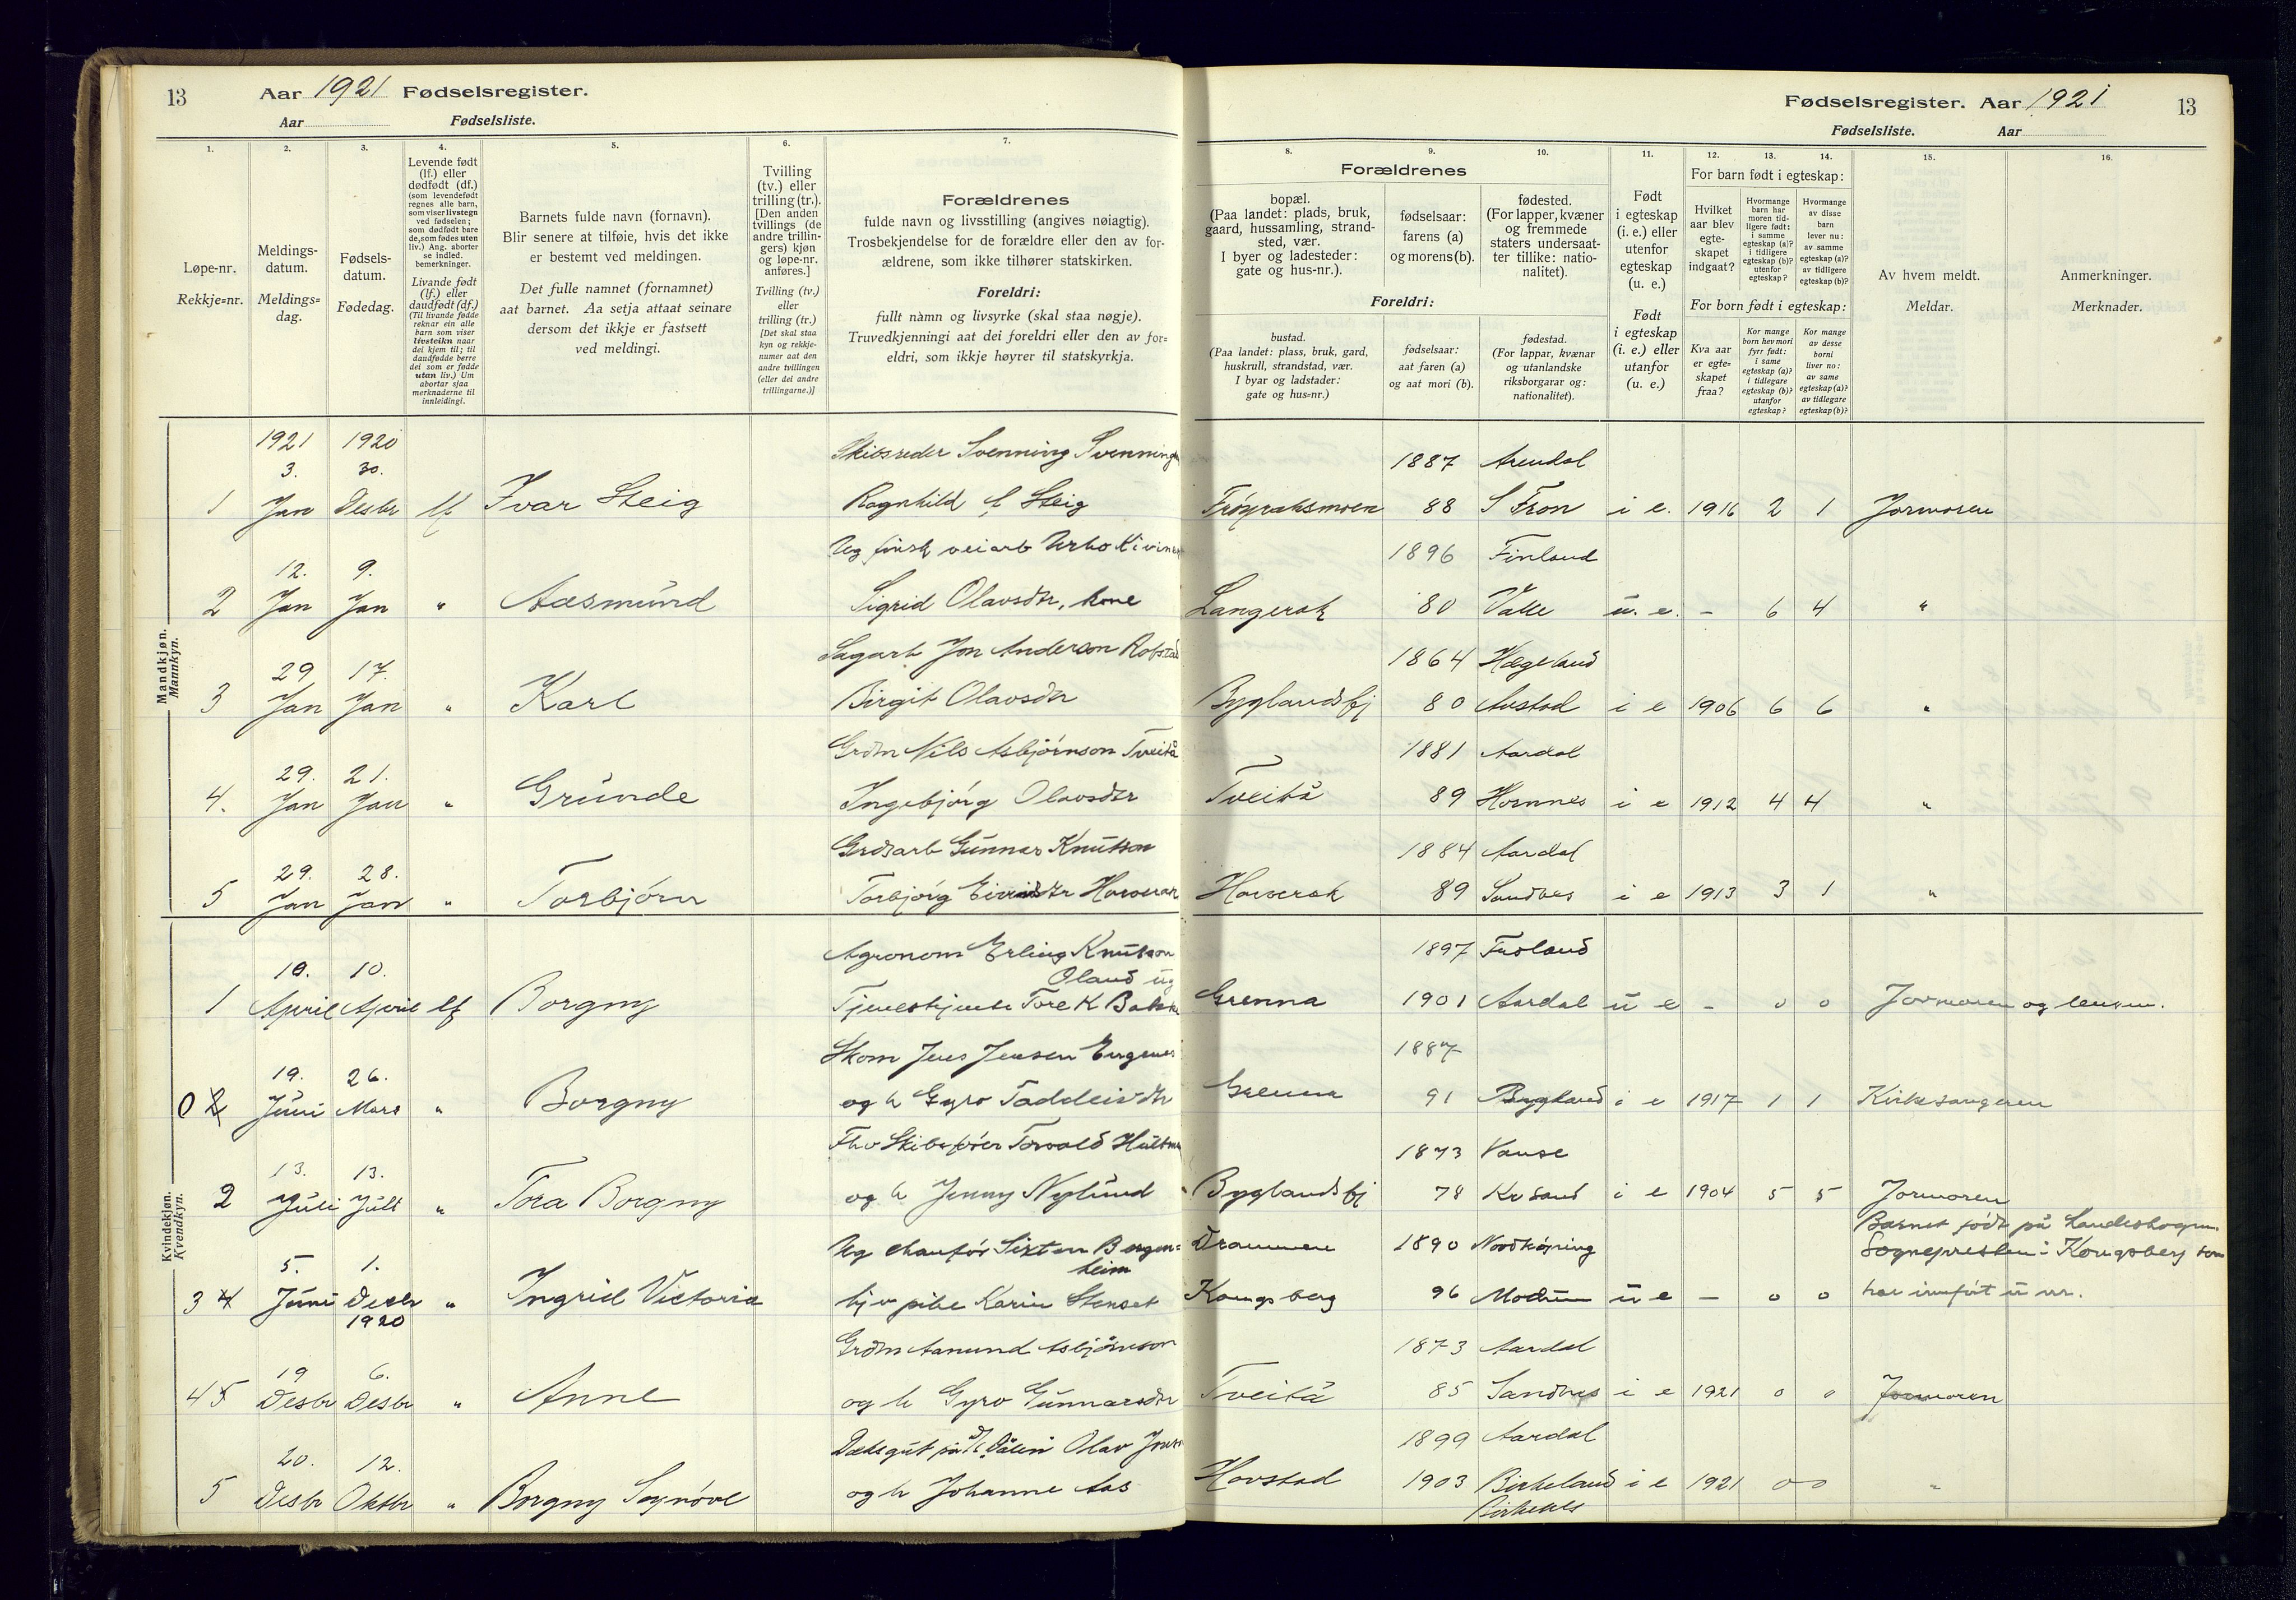 13 Aar 1921 Fødselsregister.
Aar Fødselsliste.
1.
2.
3.
4.
5.
6.
7.
Løpe-nr.
Rekkje=nr.
Meldings-
datum.
Meldings=
dag.
Fødsels-
datum.
Fødedag.
Levende født
(lf.) eller
dødfødt (df.)
(som levendefødt
regnes alle barn,
som viser livstegn
ved fødselen;
som dødfødt bare
de, som fødes uten
liv.) Ang. aborter
se indled.
bemerkninger.
Livande født
(lf.) eller
daudfødt (df.)
(Til livande fødde
reknar ein alle
barn som viser
livsteikn naar
dei kjem til; til
daudfødde berre
dei som er fødde
utan liv.) Um
abortar sjaa
merknaderne til
innleidingi.
Barnets fulde navn (fornavn).
Blir senere at tilføie, hvis det ikke
er bestemt ved meldingen.
Det fulle namnet (fornamnet)
aat barnet. Aa setja attaat seinare
dersom det ikkje er fastsett
ved meldingi.
Tvilling
(tv.) eller
trilling (tr.).
[Den anden
tvillings (de
andre trillin-
gers) kjøn
og løpe-nr.
anføres.]
Tvilling (tv.)
eller
trilling (tr.)
[Det skal staa
kyn og rekkje-
numer aat den
andre tvillingen
(eller dei andre
trillingarne.)]
Forældrenes
fulde navn og livsstilling (angives nøiagtig).
Trosbekjendelse for de forældre eller den av for-
ældrene, som ikke tilhører statskirken.
Foreldri:
fullt namn og livsyrke (skal staa nøgje).
Truvedkjenningi aat dei foreldri eller den av for=
eldri, som ikkje høyrer til statskyrkja.
Fødselsregister. Aar 1921 13
Fødselsliste. Aar
8.
9.
10.
11.
12.
13.
14.
15.
16.
Forældrenes
bopæl.
(Paa landet: plads, bruk,
gaard, hussamling, strand-
sted, vær.
I byer og ladesteder:
gate og hus-nr.).
fødselsaar:
farens (a)
og morens (b).
fødested.
(For lapper, kvæner
og fremmede
staters undersaat-
ter tillike: natio-
nalitet).
Foreldri:
bustad.
(Paa landet: plass, bruk, gard,
huskrull, strandstad, vær.
I byar og ladstader:
gate og hus=nr.)
fødselsaar:
aat faren (a)
og aat mori (b).
fødestad.
(For lappar, kvænar
og utanlandske
riksborgarar og:
nationalitet).
Født
i egteskap
(i. e.) eller
utenfor
egteskap
(u. e.)
Født
i egteskap
(i. e.) eller
utanfor
(u. e.)
For barn født i egteskap:
Hvilket
aar blev
egte-
skapet
indgaat?
Hvormange
barn har
moren tid-
ligere født:
i samme
egteskap (a)?
i tidligere
egteskap (b)?
utenfor
egteskap?
Hvormange
av disse
barn
lever nu:
av samme
egteskap (a)?
av tidligere
egteskap (b)?
For born født i egteskap:
Kva aar
er egte=
skapet
fraa?
Kor mange
born hev mori
fyrr født:
i same
egteskap (a)?
i tidlegare
egteskap (b)?
utanfor
egteskap?
Kor mange
av desse
borni
liver no:
av same
egteskap (a)?
av tidlegare
egteskap (b)?
Av hvem meldt.
Meldar.
Anmerkninger.
Merknader.
Mandkjøn.
Mannkyn.
1921 1920 Skibsreder Svenning 1887 Arendal
3. 30.
1 Jan Desbr lf Ivar Steig Ragnhild f Steig 88 S Fron i e. 1916 2 1 Jormoren
Ug finsk veiarb Urho 1896 Finland
12. 9.
2 Jan Jan " Aasmund Sigrid Olavsdtr, kone Langerak 80 Valle u. e. - 6 4 "
Sagarb Jon Anderson 1864 Hægeland
29 17.
3 Jan Jan " Karl Birgit Olavsdtr Byglandsfj 80 Austad i e 1906 6 6 "
Grdm Nils Asbjørnson Tveitå 1881 Aardal
29. 21.
4. Jan Jan " Grunde Ingebjørg Olavsdtr Tveitå 89 Hornnes i e 1912 4 4 "
Grdsarb Gunnar Knutson 1884 Aardal
29. 28.
5 Jan Jan " Torbjørn Torbjørg Horverak 89 Sandnes i e 1913 3 1 "
Kvindekjøn.
Kvendkyn.
Agronom Erling Knutson 1897 Froland
Oland ug
10. 10.
1 April April lf Borgny Tore K Grenna 1901 Aardal u e - 0 0 Jormoren og
Skom Jens Jensen 1887
19. 26.
0 2 Juni Mars " Borgny og h Gyro Taddeivdtr Grenna 91 Bygland i e 1917 1 1 Kirkesangeren
Fhv Skibsfører Torvald 1873 Vanse
13. 13.
2 Juli Juli " Tora Borgny og h Jenny Nylund Byglandsfj 78 Kr Sand i e 1904 5 5 Jormoren
Ug chauffør Sixten Bergen= Drammen 1890 Nordkøping Barnet født på
heim Sognepresten i Kongsberg som
5. 1.
3 4 Juni Desbr " Ingrid Victoria Karin Stenset Kongsberg 96 Modum u e - 0 0 har innført u nr.
1920
Grdm Aanund Asbjørnson 1873 Aardal
19 6.
4 5 Desbr Desbr " Anne og h Gyro Gunnarsdtr Tveitå 85 Sandnes i e 1921 0 0 Jormoren
Dæksgut på Olav 1899 Aardal
20. 12.
5 Desbr Oktbr " Borgny Synøve og h Johanne Aas Horstad 1903 Birkeland i e 1921 0 0 "
Birkenes